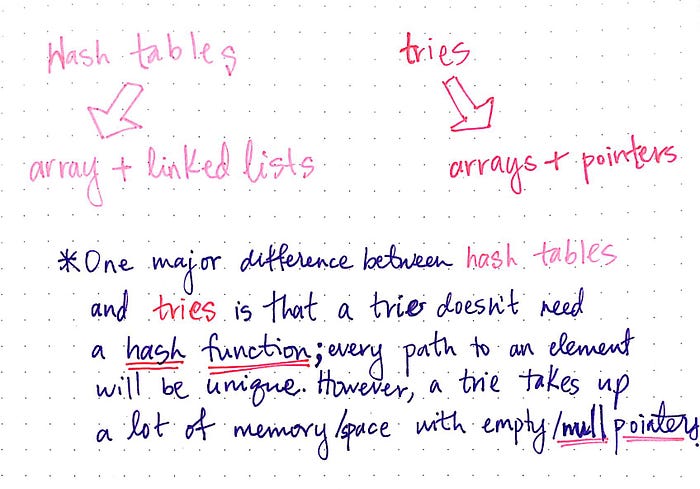 Hash tables
tries
array + linked lists
arrays + pointers
*One major difference between hash tables
and tries is that a trie doesn't need
a hash function; every path to an element
will be unique. However, a trie takes up
a lot of memory/space with empty/null pointers!